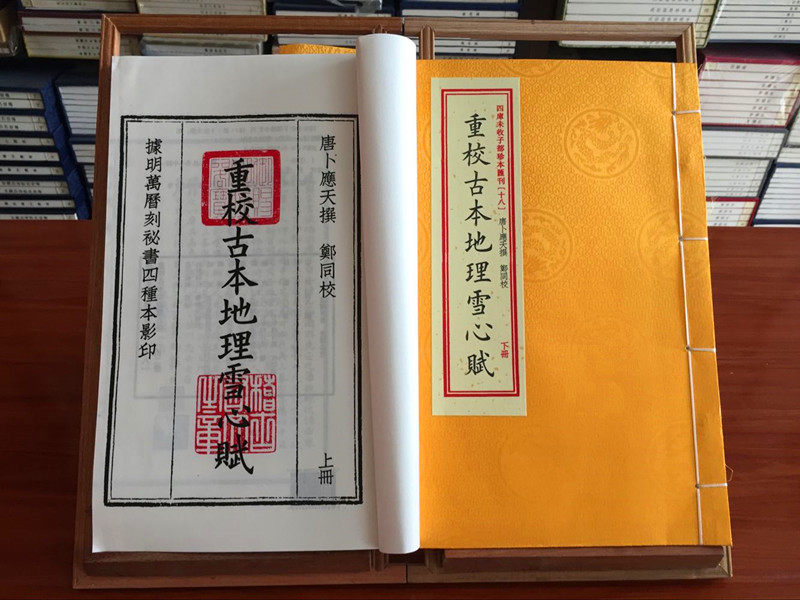 唐卜應天撰 鄭同校
重校古本地理雪心賦
上冊
據明萬曆刻祕書四種本影印
四庫未收子部珍本匯刊〔十八〕
唐卜應天撰 鄭同校
重校古本地理雪心賦
下冊